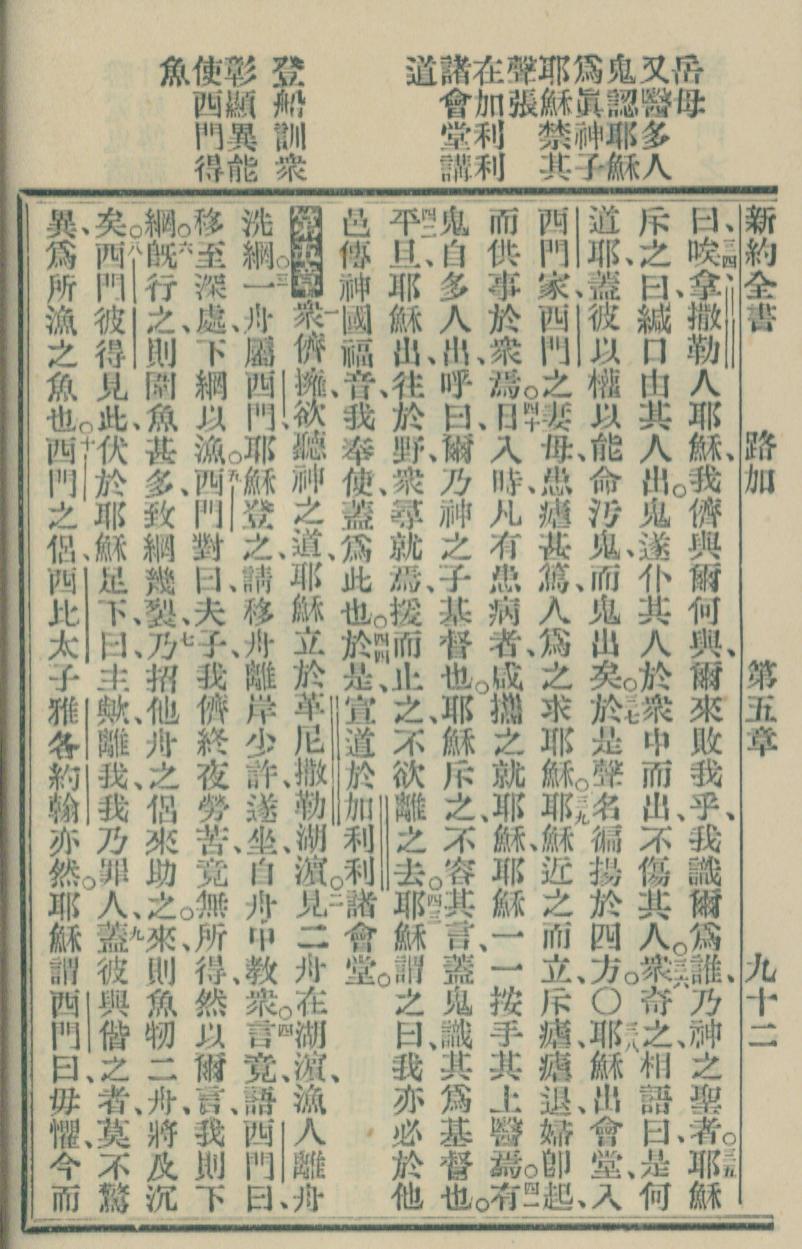 岳母
又醫多人
鬼認耶穌
爲眞神子
耶穌禁其
聲張
在加利利
諸會堂講
道
登船訓衆
彰顯異能
使西門得
魚
新約全書 路加 第五章 九十二
曰、三四、唉拿撒勒人耶穌、我儕與爾何與、爾來敗我乎、我識爾爲誰、乃神之聖者。三五耶穌
斥之曰、緘口由其人出。鬼遂仆其人於衆中而出、不傷其人。三六衆奇之、相語曰、是何
道耶、蓋彼以權以能命汚鬼、而鬼出矣。三七於是聲名徧揚於四方。〇三八耶穌出會堂、入
西門家、西門之妻母患瘧甚篤、人爲之求耶穌。三九耶穌近之而立、斥瘧、瘧退、婦卽起、
而供事於衆焉。四十日入時、凡有患病者、咸攜之就耶穌、耶穌一一按手其上醫焉。四一有
鬼自多人出、呼曰、爾乃神之子基督也。耶穌斥之、不容其言、蓋鬼識其爲基督也。
四二平旦、耶穌出、往於野、衆尋就焉、援而止之、不欲離之去。四三耶穌謂之曰、我亦必於他
邑傳神國福音、我奉使、蓋爲此也。四四於是宣道於加利利諸會堂。
第五章 一衆儕擁、欲聽神之道、耶穌立於革尼撒勒湖濵。二見二舟在湖濵、漁人離舟
洗網。三一舟屬西門、耶穌登之、請移舟離岸少許、遂坐、自舟中教衆。四言竟、語西門曰、
移至深處、下網以漁。五西門對曰、夫子、我儕終夜勞苦、竟無所得、然以爾言、我則下
網。六旣行之、則圍魚甚多、致網幾裂、七乃招他舟之侶來助之。來、則魚牣二舟、將及沉
矣。八西門彼得見此、伏於耶穌足下、曰、主歟、離我、我乃罪人、九蓋彼與偕之者、莫不驚
異、爲所漁之魚也。十西門之侶、西比太子雅各約翰亦然。耶穌謂西門曰、毋懼、今而